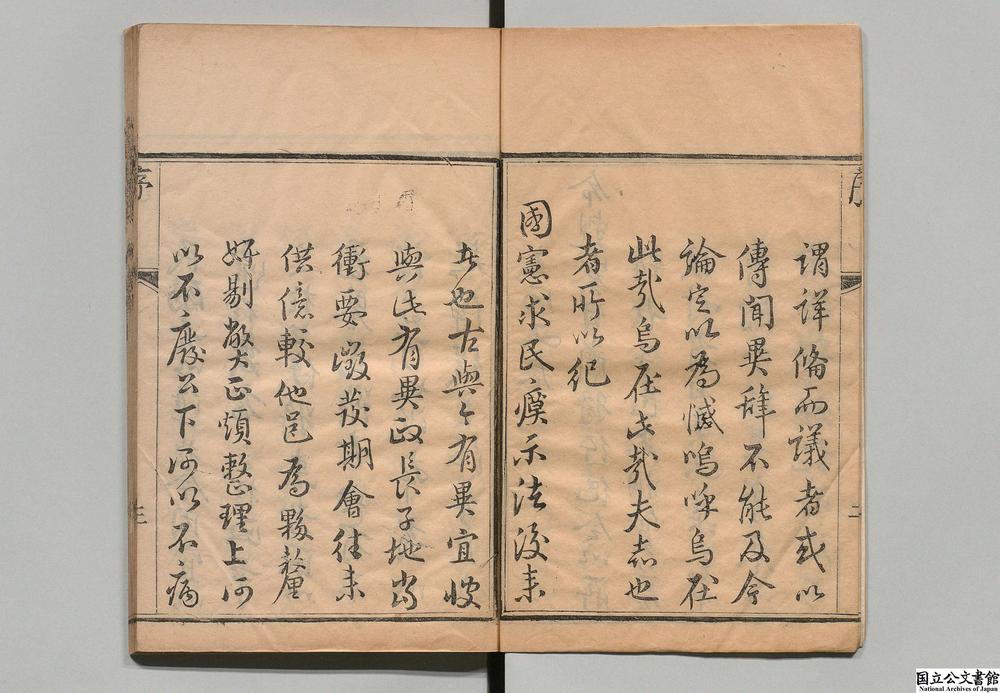 序
二
謂詳備而議者或以
傳聞異辭不能及今
論定以為憾嗚呼烏在
此哉烏在此哉夫志也
者所以紀
國憲求民瘼示法後來
者也古與今有異宜彼
與此有異政長子地当
衝要徵發期會往来
供億較他邑為夥釐
奸剔弊正煩整理上何
以不廢公下何以不病
序
三
国立公文書館
National Archives of Japan